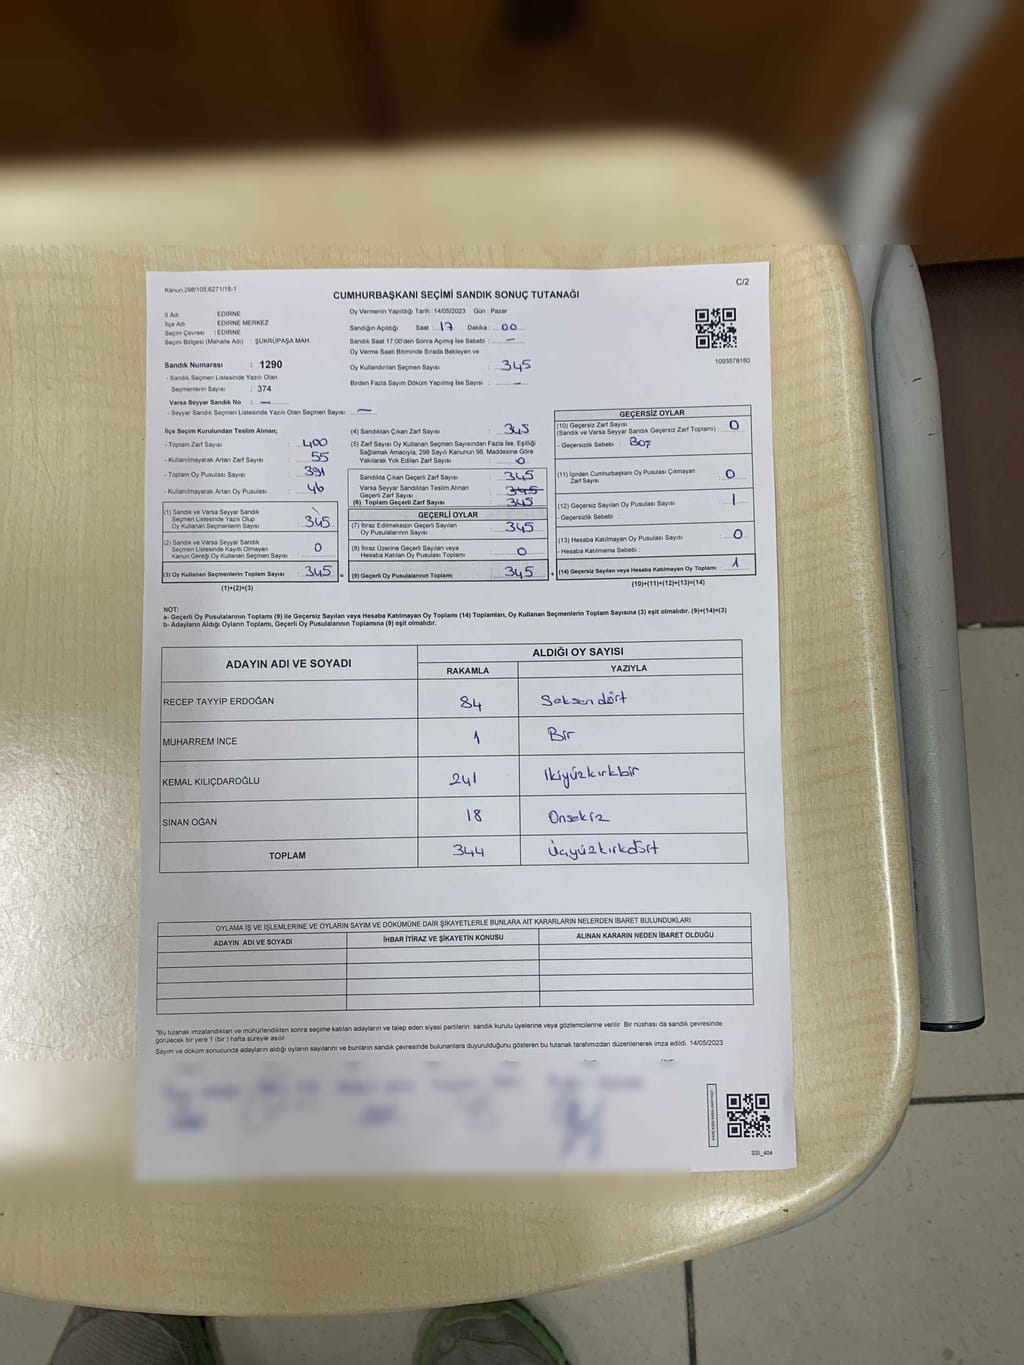 Kanun:298/105,6271/18-1
C/2
CUMHURBAŞKANI SEÇİMİ SANDIK SONUÇ TUTANAĞI
İl Adı : EDİRNE
İlçe Adı : EDİRNE MERKEZ
Seçim Çevresi : EDİRNE
Seçim Bölgesi (Mahalle Adı) : ŞÜKRÜPAŞA MAH
Sandık Numarası : 1290
- Sandık Seçmen Listesinde Yazılı Olan
Seçmenlerin Sayısı : 374
Varsa Seyyar Sandık No : —
- Seyyar Sandık Seçmen Listesinde Yazılı Olan Seçmen Sayısı : —
Oy Vermenin Yapıldığı Tarih : 14/05/2023 Gün : Pazar
Sandığın Açıldığı Saat : 17 Dakika : 00
Sandık Saat 17:00'den Sonra Açılmış İse Sebebi : —
Oy Verme Saati Bitiminde Sırada Bekleyen ve
Oy Kullandırılan Seçmen Sayısı : 345
Birden Fazla Sayım Döküm Yapılmış İse Sayısı : —
1093578180
İlçe Seçim Kurulundan Teslim Alınan;
- Toplam Zarf Sayısı : 400
- Kullanılmayarak Artan Zarf Sayısı : 55
- Toplam Oy Pusulası Sayısı : 391
- Kullanılmayarak Artan Oy Pusulası : 46
(1) Sandık ve Varsa Seyyar Sandık
Seçmen Listesinde Yazılı Olup
Oy Kullanan Seçmenlerin Sayısı : 345
(2) Sandık ve Varsa Seyyar Sandık
Seçmen Listesinde Kayıtlı Olmayan
Kanun Gereği Oy Kullanan Seçmen Sayısı : 0
(3) Oy Kullanan Seçmenlerin Toplam Sayısı : 345 =
(1)+(2)=(3)
(4) Sandıktan Çıkan Zarf Sayısı : 345
(5) Zarf Sayısı Oy Kullanan Seçmen Sayısından Fazla İse, Eşitliği
Sağlamak Amacıyla; 298 Sayılı Kanunun 98. Maddesine Göre
Yakılarak Yok Edilen Zarf Sayısı : 0
Sandıkta Çıkan Geçerli Zarf Sayısı : 345
Varsa Seyyar Sandıktan Teslim Alınan
Geçerli Zarf Sayısı : 345
(6) Toplam Geçerli Zarf Sayısı : 345
GEÇERLİ OYLAR
(7) İtiraz Edilmeksizin Geçerli Sayılan
Oy Pusulalarının Sayısı : 345
(8) İtiraz Üzerine Geçerli Sayılan veya
Hesaba Katılan Oy Pusulası Toplamı : 0
(9) Geçerli Oy Pusulalarının Toplamı : 345 +
GEÇERSİZ OYLAR
(10) Geçersiz Zarf Sayısı
(Sandık ve Varsa Seyyar Sandık Geçersiz Zarf Toplamı) : 0
- Geçersizlik Sebebi : Boş
(11) İçinden Cumhurbaşkanı Oy Pusulası Çıkmayan
Zarf Sayısı : 0
(12) Geçersiz Sayılan Oy Pusulası Sayısı : 1
- Geçersizlik Sebebi :
(13) Hesaba Katılmayan Oy Pusulası Sayısı : 0
- Hesaba Katılmama Sebebi :
(14) Geçersiz Sayılan veya Hesaba Katılmayan Oy Toplamı : 1
(10)+(11)+(12)+(13)=(14)
NOT:
a- Geçerli Oy Pusulalarının Toplamı (9) ile Geçersiz Sayılan veya Hesaba Katılmayan Oy Toplamı (14) Toplamları, Oy Kullanan Seçmenlerin Toplam Sayısına (3) eşit olmalıdır. (9)+(14)=(3)
b- Adayların Aldığı Oyların Toplamı, Geçerli Oy Pusulalarının Toplamına (9) eşit olmalıdır.
ADAYIN ADI VE SOYADI
ALDIĞI OY SAYISI
RAKAMLA YAZIYLA
RECEP TAYYİP ERDOĞAN 84 Seksendört
MUHARREM İNCE 1 Bir
KEMAL KILIÇDAROĞLU 241 İkiyüzkırkbir
SİNAN OĞAN 18 Onsekiz
TOPLAM 344 Üçyüzkırkdört
OYLAMA İŞ VE İŞLEMLERİNE VE OYLARIN SAYIM VE DÖKÜMÜNE DAİR ŞİKAYETLERLE BUNLARA AİT KARARLARIN NELERDEN İBARET BULUNDUKLARI
ADAYIN ADI VE SOYADI İHBAR İTİRAZ VE ŞİKAYETİN KONUSU ALINAN KARARIN NEDEN İBARET OLDUĞU
*Bu tutanak imzalandıktan ve mühürlendikten sonra seçime katılan adayların ve talep eden siyasi partilerin sandık kurulu üyelerine veya gözlemcilerine verilir. Bir nüshası da sandık çevresinde
görülecek bir yere 1 (bir ) hafta süreyle asılır.
Sayım ve döküm sonucunda adayların aldığı oyların sayılarını ve bunların sandık çevresinde bulunanlara duyurulduğunu gösteren bu tutanak tarafımızdan düzenlenerek imza edildi. 14/05/2023
SSI_404